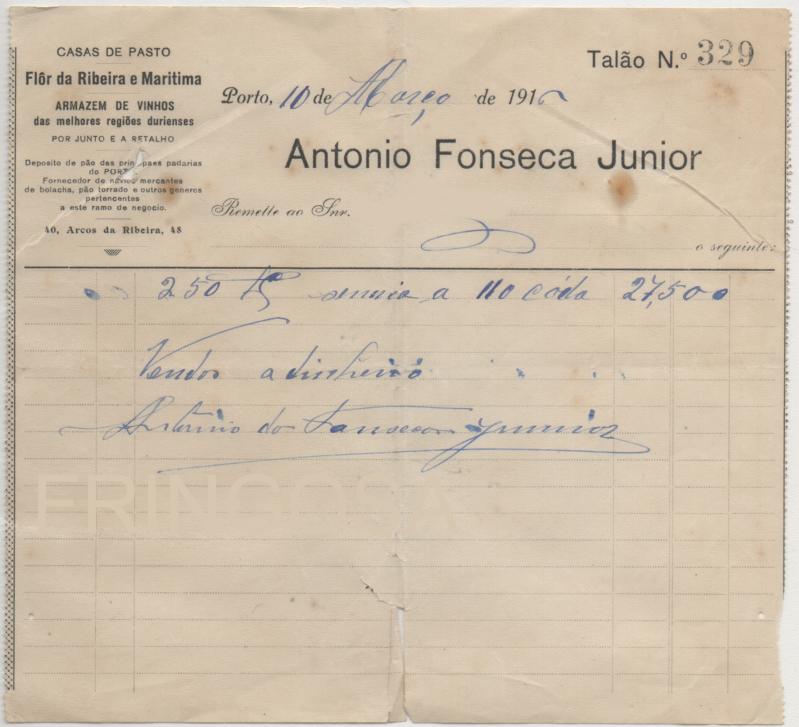 CASAS DE PASTO
Flôr da Ribeira e Maritima
ARMAZEM DE VINHOS
das melhores regiões durienses
POR JUNTO E A RETALHO
Deposito de pão das principaes padarias
do PORTO
Fornecedor de navios mercantes
de bolacha, pão torrado e outros generos
pertencentes
a este ramo de negocio.
40, Arcos da Ribeira, 48
Talão N.º 329
Porto, 10 de Março de 191
Antonio Fonseca Junior
Remette ao Snr.
o seguinte:
250 a 110 cáda 27,500
a dinheiro
Antonio da Fonseca Junior
FRINGOSA